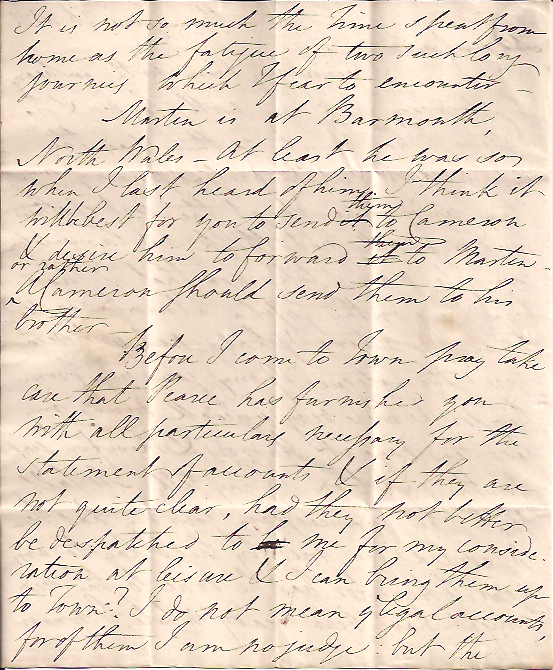 It is not so much the time spent from
home as the fatigue of two such long
journies which I fear to encounter -
Martin is at Barmouth,
North Wales - At least he was so
when I last heard of him. I think it
will be best for you to send it them to Cameron
& desire him to forward it them to Martin -
or rather Cameron should send them to his
brother -
Before I come to Town pray take
care that Pearce has furnished you
with all particulars necessary for the
statement of accounts & if they are
not quite clear, had they not better
be despatched to me for my conside-
ration at leisure & I can bring them up
to Town? I do not mean of legal accounts,
for of them I am no judge: but the